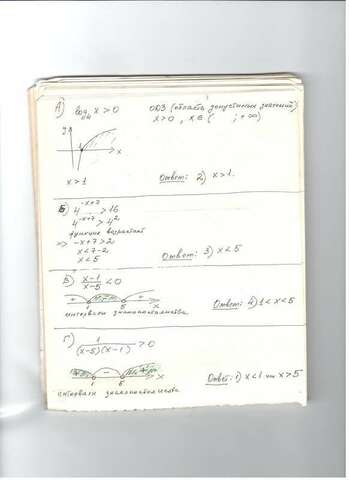 А) log x > 0
ОДЗ (область допустимых значений)
x > 0 , x ∈ ( ; +∞)
y
1
x
x > 1
Ответ: 2) x > 1.
Б) 4^{-x+7} > 16
4^{-x+7} > 4²
функция возрастает
=> -x+7 > 2
x < 7-2
x < 5
Ответ: 3) x < 5
В) \frac{x-1}{x-5} < 0
+ - +
1 5 x
интервалы знакопостоянства
Ответ: 4) 1 < x < 5
Г) \frac{1}{(x-5)(x-1)} > 0
-
1 5 x
интервалы знакопостоянства
Ответ: 1) x < 1 или x > 5